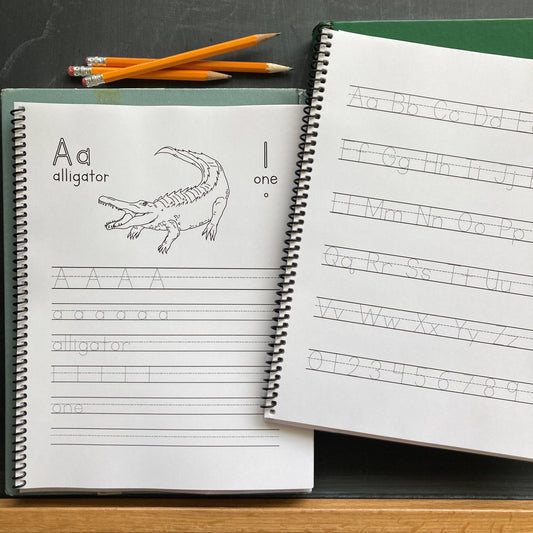 Aa 1
alligator one
A A A A
a a a a a a
alligator
1 1 1 1 1
one
Aa Bb Cc Dd E
Ff Gg Hh Ii Jj
Ll Mm Nn Oo Pp
Qq Rr Ss Tt Uu
Vv Ww Xx Yy Zz
0 1 2 3 4 5 6 7 8 9